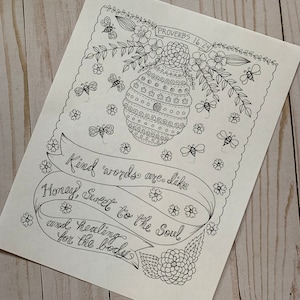 PROVERBS 16:24
Kind words are like
Honey, Sweet to the Soul
and healing
for the body